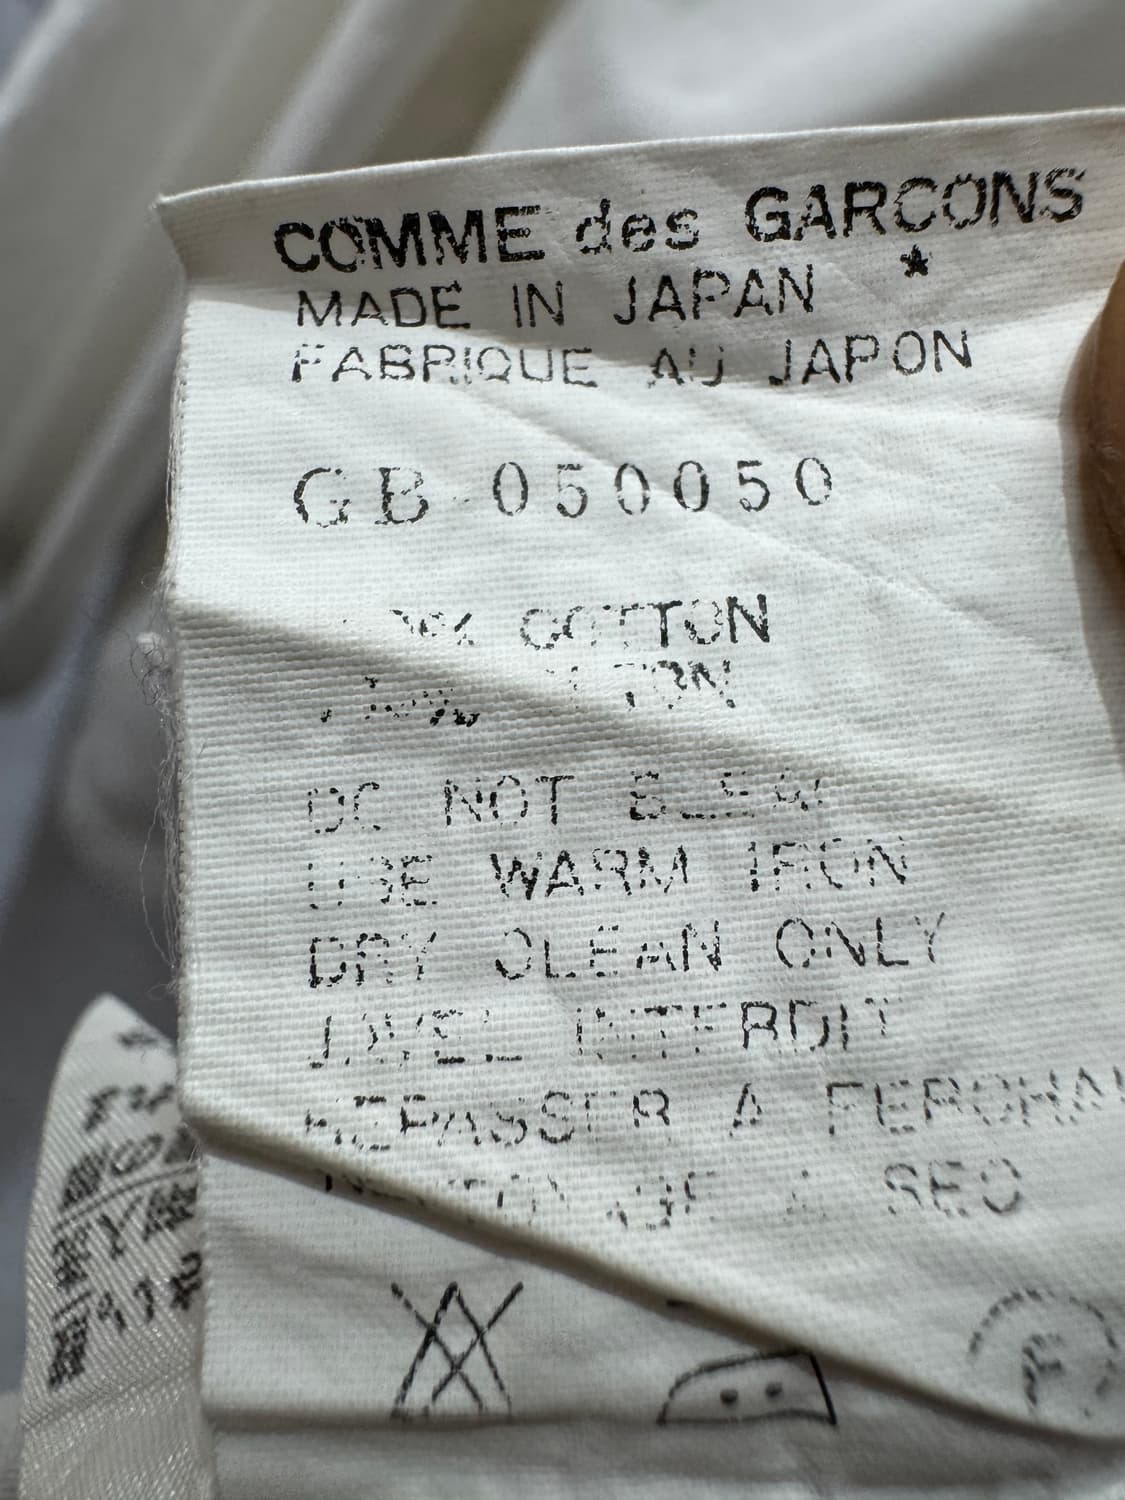 COMME des GARCONS
★
MADE IN JAPAN
FABRIQUE AU JAPON
GB-050050
COTTON
DO NOT BLEACH
USE WARM IRON
DRY CLEAN ONLY
JAVEL INTERDIT
REPASSER A FER
A SEC
P